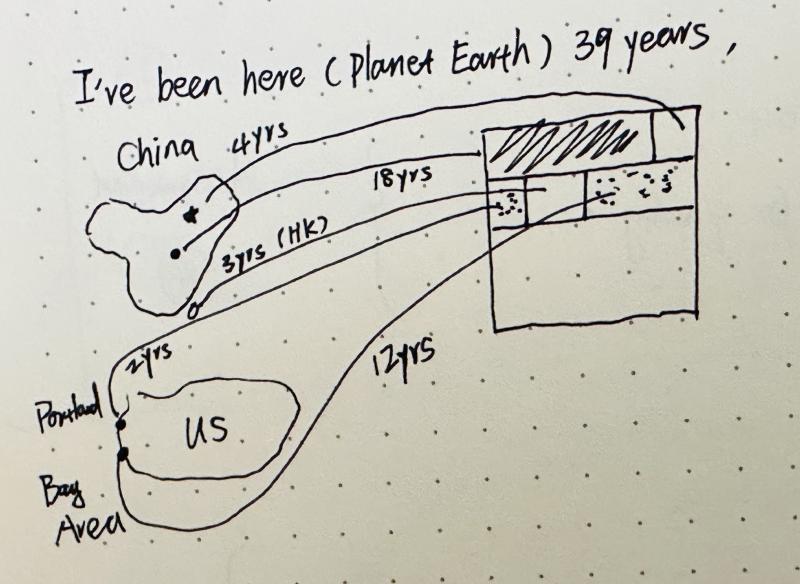 I've been here (Planet Earth) 39 years,
China
4yrs
18yrs
3yrs (HK)
2yrs
12yrs
Portland
US
Bay
Area